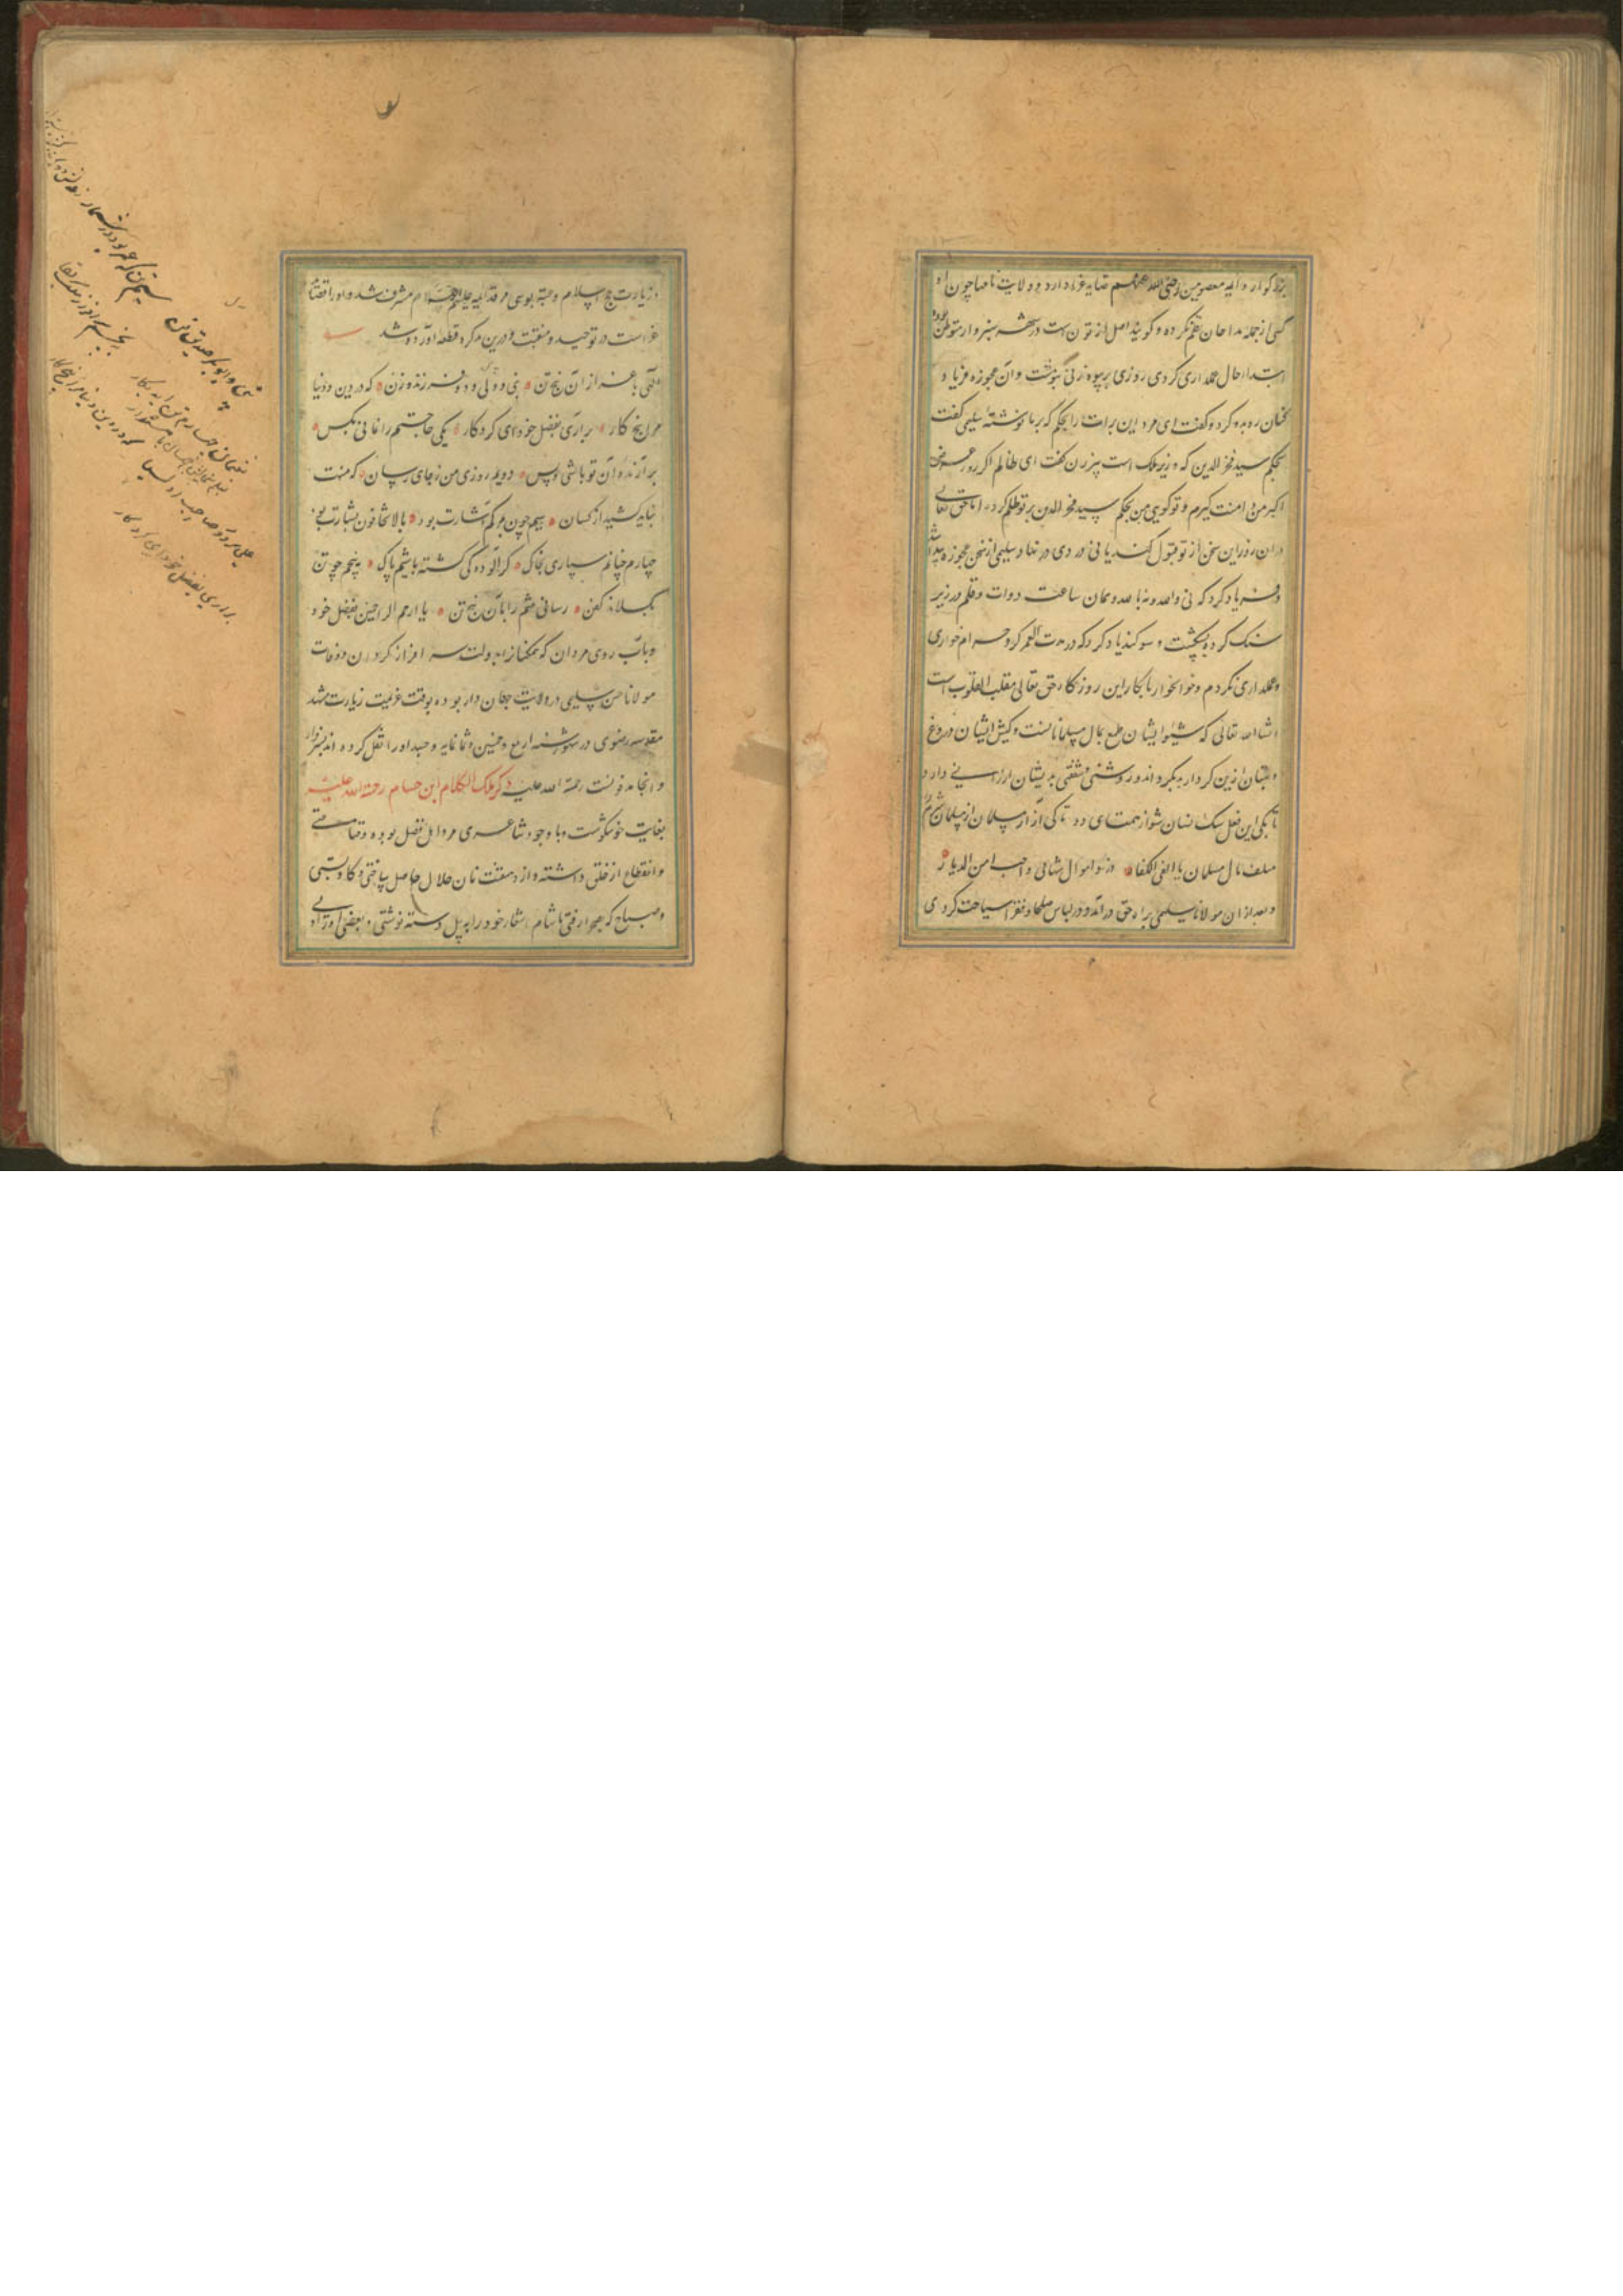 بزرگوار و ائمه معصومین رضی الله عنهم قصاید غرا دارد و ولایت نامها چون او
کسی از جمله مداحان نظم نکرده و گویند اصل از تون است در شهر سبزوار متوطن بوده
ابتدا حال عملداری کردی روزی بر پیوه زنی بگذشت و آن عجوزه فریاد
کنان رو بدو کرد و گفت ای مرد این برات را بحکم که بر ما نوشته سلیمی گفت
بحکم سید فخر الدین که وزیر ملک است پیرزن گفت ای ظالم اگر روز عرض
اکبر من دامنت گیرم و تو گویی من بحکم سید فخر الدین بر تو ظلم کردم آیا حق تعالی
در آن روز این سخن از تو قبول کند یا نی دردی در نهاد سلیمی از سخن عجوزه پیدا شد
و فریاد کرد که نی والله و نه بالله و همان ساعت دوات و قلم در زیر
سنگ کرده بشکست و سوگند یاد کرد که در مدت العمر گرد حرام خواری
و عملداری نگردم و خوانخوار نابکار این روزگار حق تعالی مقلب القلوب است
انشاء الله تعالی که شیوه ایشان طمع بمال مسلمانانست و کیش ایشان دروغ
و بهتان ازین کردار بگرداند و روشنی و شفقتی بدیشان ارزانی دارد
تا بکی این فعل سگ نسان شو از همت ای دد تا کی آزار مسلمان از مسلمان شرم دار
متلف مال مسلمان یا الفی الکفار در سواموال شامی واجب امن الدیار
و بعد از آن مولانا سلیمی براه حق درآمد و در لباس صلحا و فقرا سیاحت کردی
و زیارت حج اسلام و عتبه بوسی مرقد ائمه علیهم السلام مشرف شد و او را قصاید
غراست در توحید و منقبت و درین ذکر قطعه آورده شد
الهی باعزاز آن پنج تن نبی و ولی و دو فرزند و زن که در دین و دنیا
مرا پنج کار براری بفضل خود ای کردگار یکی حاجتم را نمانی بکس
برآرنده آن تو باشی و بس دویم روزی من ز جای رسان که منت
نباید کشید از کسان سیم چون بمرگم اشارت بود بالا تخافون بشارت بود
چهارم چنانم سپاری بخاک که آلودگی گشته باشیم پاک پنجم چو تن
بگسلاند کفن رسانی تنم را بآن پنج تن یا ارحم الراحمین بفضل خود
و بآب روی مردان که همگنانرا بدولت سرافراز گردان و وفات
مولانا حسن سلیمی در ولایت جهان دار بوده بوقت عزیمت زیارت مشهد
مقدسه رضوی در شهور سنه اربع و خمسین و ثمانمایه و جسد او را نقل کرده اند بسبزوار
و آنجا مدفونست رحمة الله علیه ذکر ملک الکلام ابن حسام رحمة الله علیه
بغایت خوشگوست و با وجود شاعری مردی اهل فضل بوده و قناعتی
و انقطاع از خلق داشته و از دهقنت نان حلال حاصل ساختی و گاو بستی
و صباح که بصحرا رفتی تا شام اشعار خود را بر بیل دسته نوشتی و بعضی او را ولی
نبی و ابوبکر صدیق
علی سرور و صاحب
براری بفضل خود ای کردگار